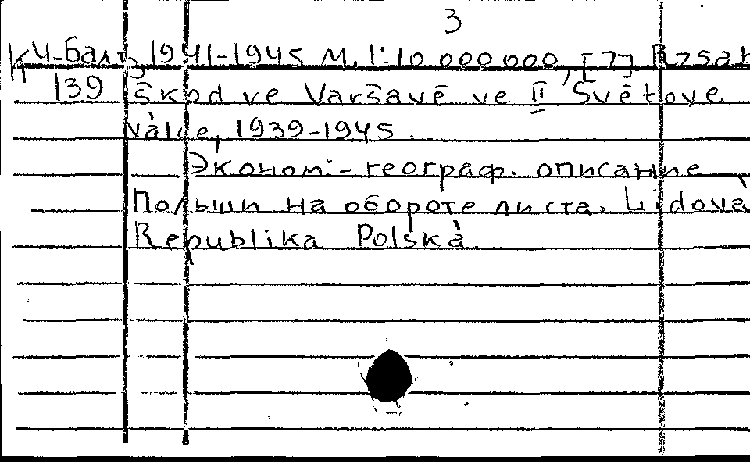 3
К4-Балт, 1941-1945 М. 1:10 000 000, [7] Rzsah
139 škod ve Varšavě ve II Světove
válce, 1939-1945.
Эконом.-географ. описание
Польши на обороте листа. Lidová
Republika Polská.